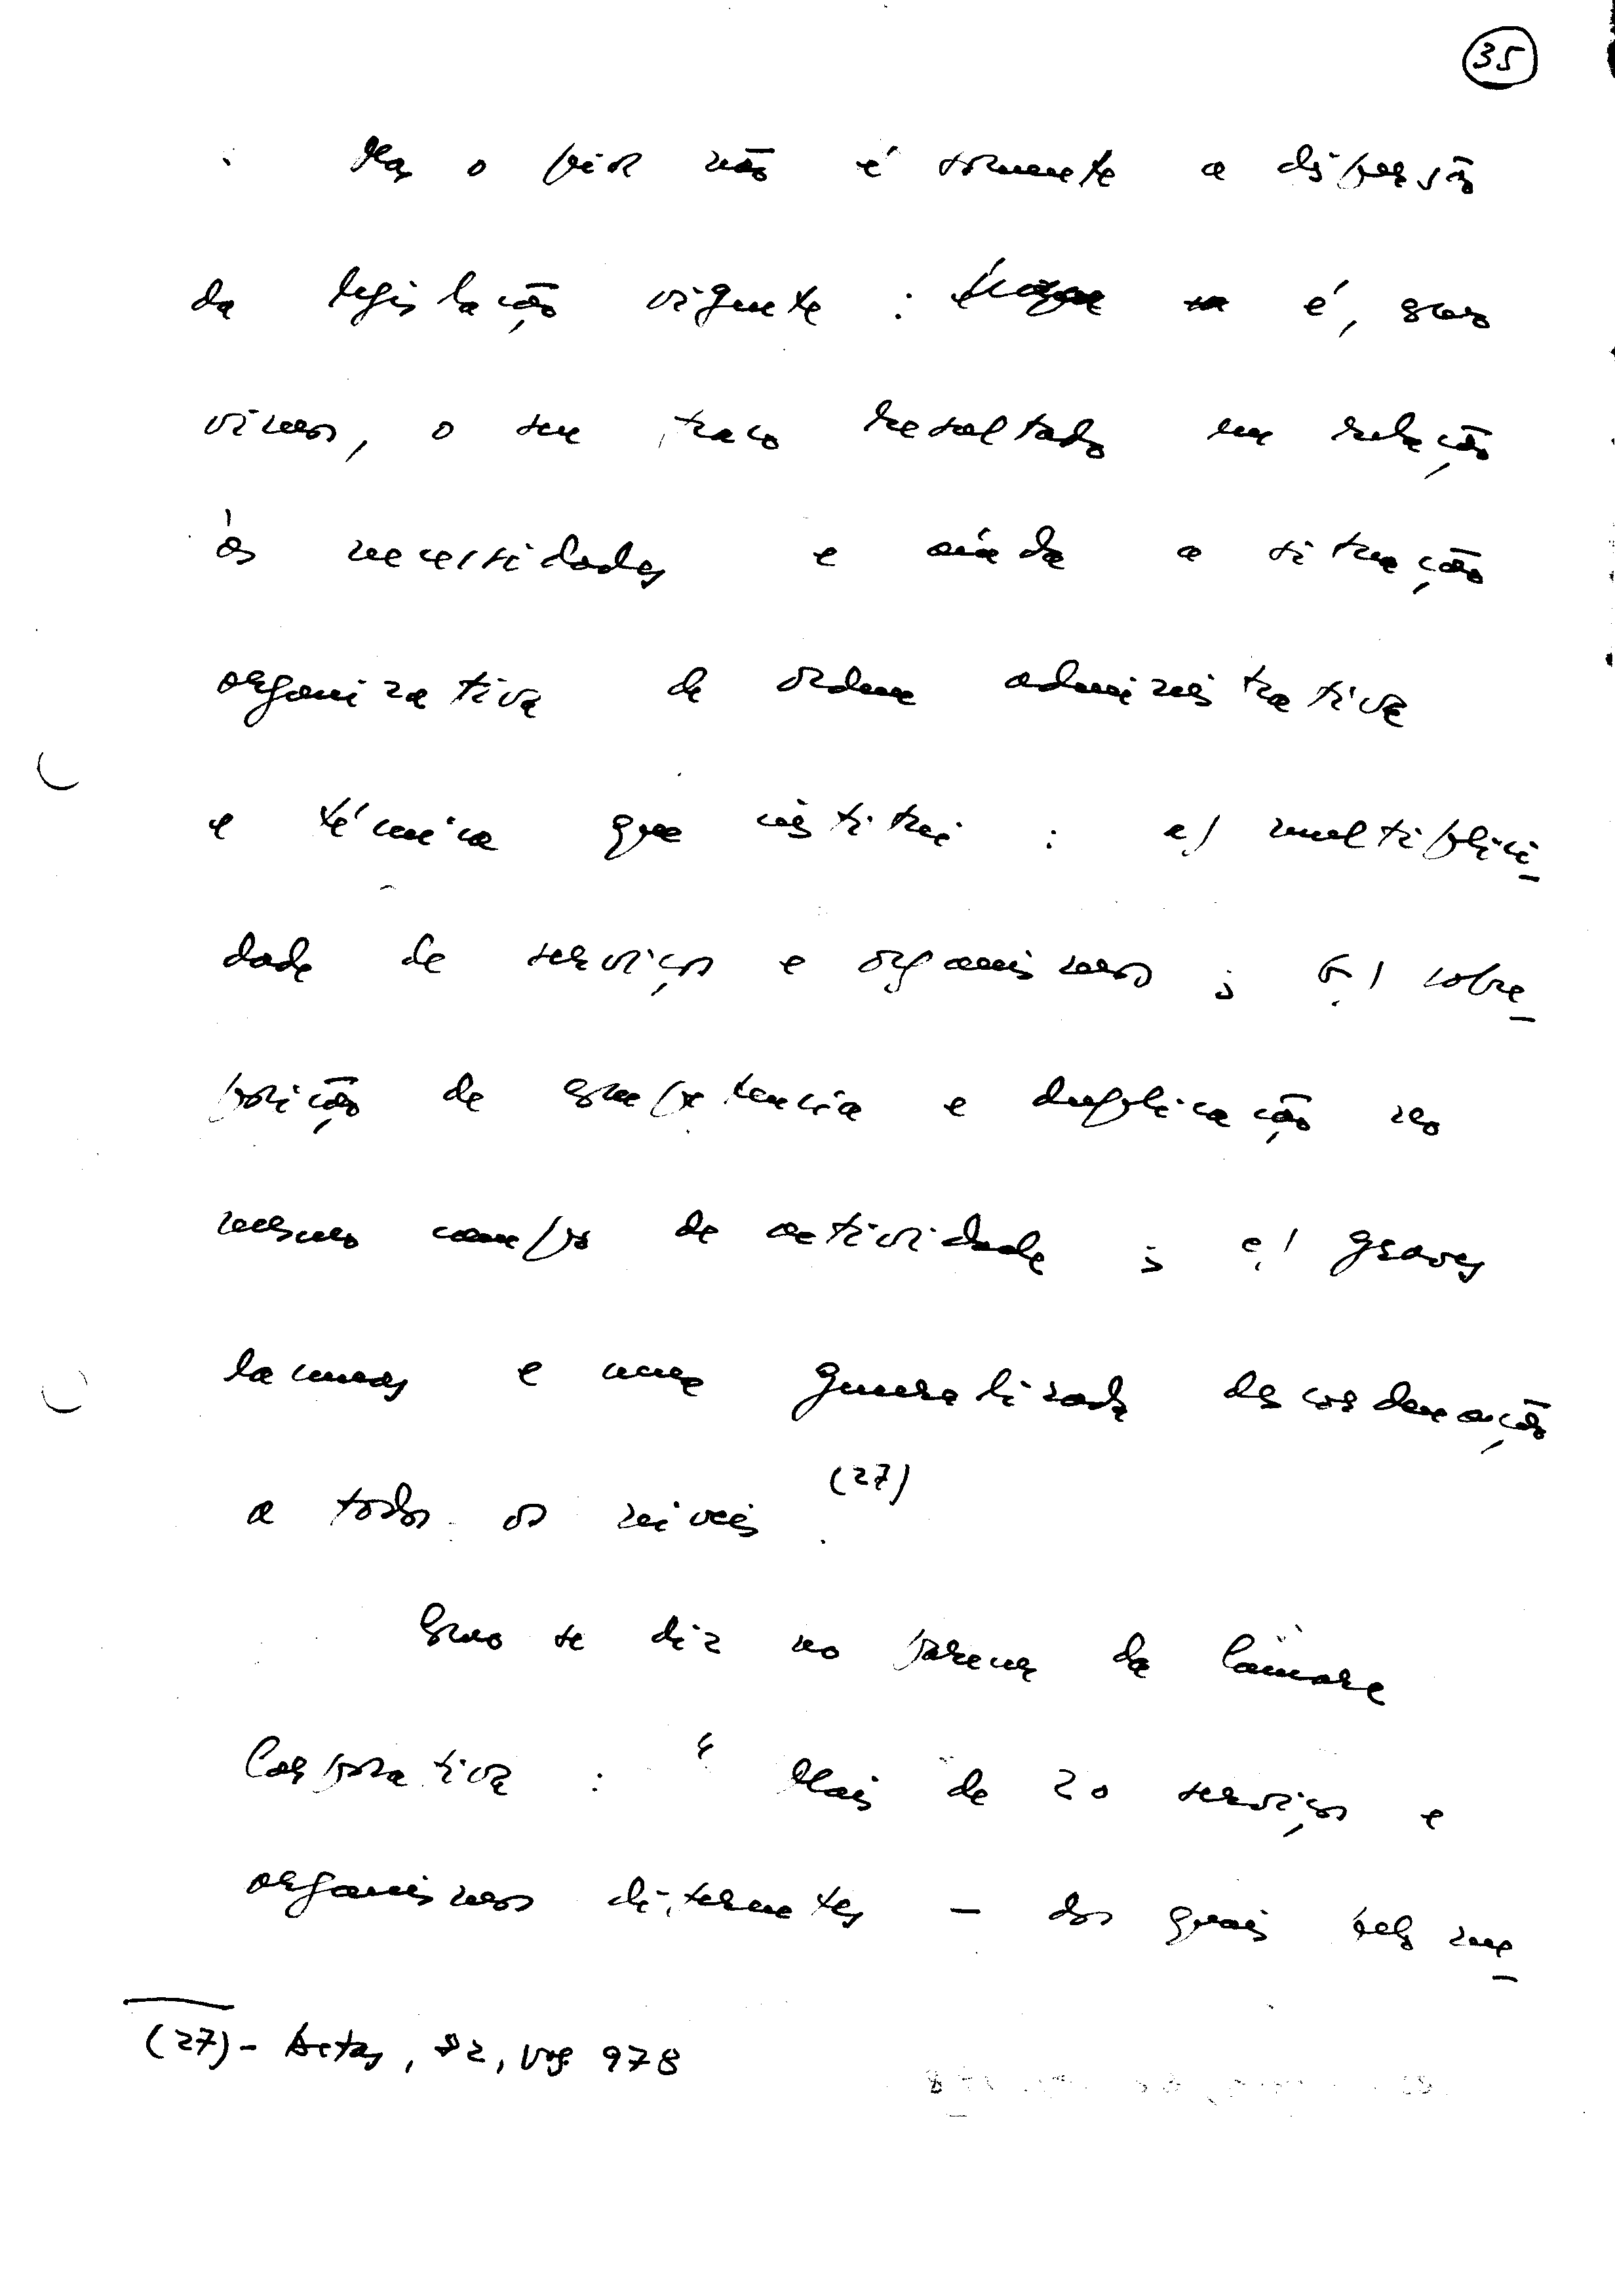 35
Mas o pior não é somente a dispersão
da legislação vigente : é, como
vimos, o seu fraco resultado em relação
às necessidades e ainda a situação
organizativa de ordem administrativa
e técnica que institui : a) multiplici-
dade de serviços e organismos ; b) sobre-
posição de competência e duplicação no
mesmo campo de actividade ; c) graves
lacunas e uma generalizada descordenação
a todos os níveis (27).
Como se diz no parecer da Câmara
Corporativa : " Mais de 20 serviços e
organismos diferentes — dos quais pelo me-
(27) - Actas, 82, pag 978